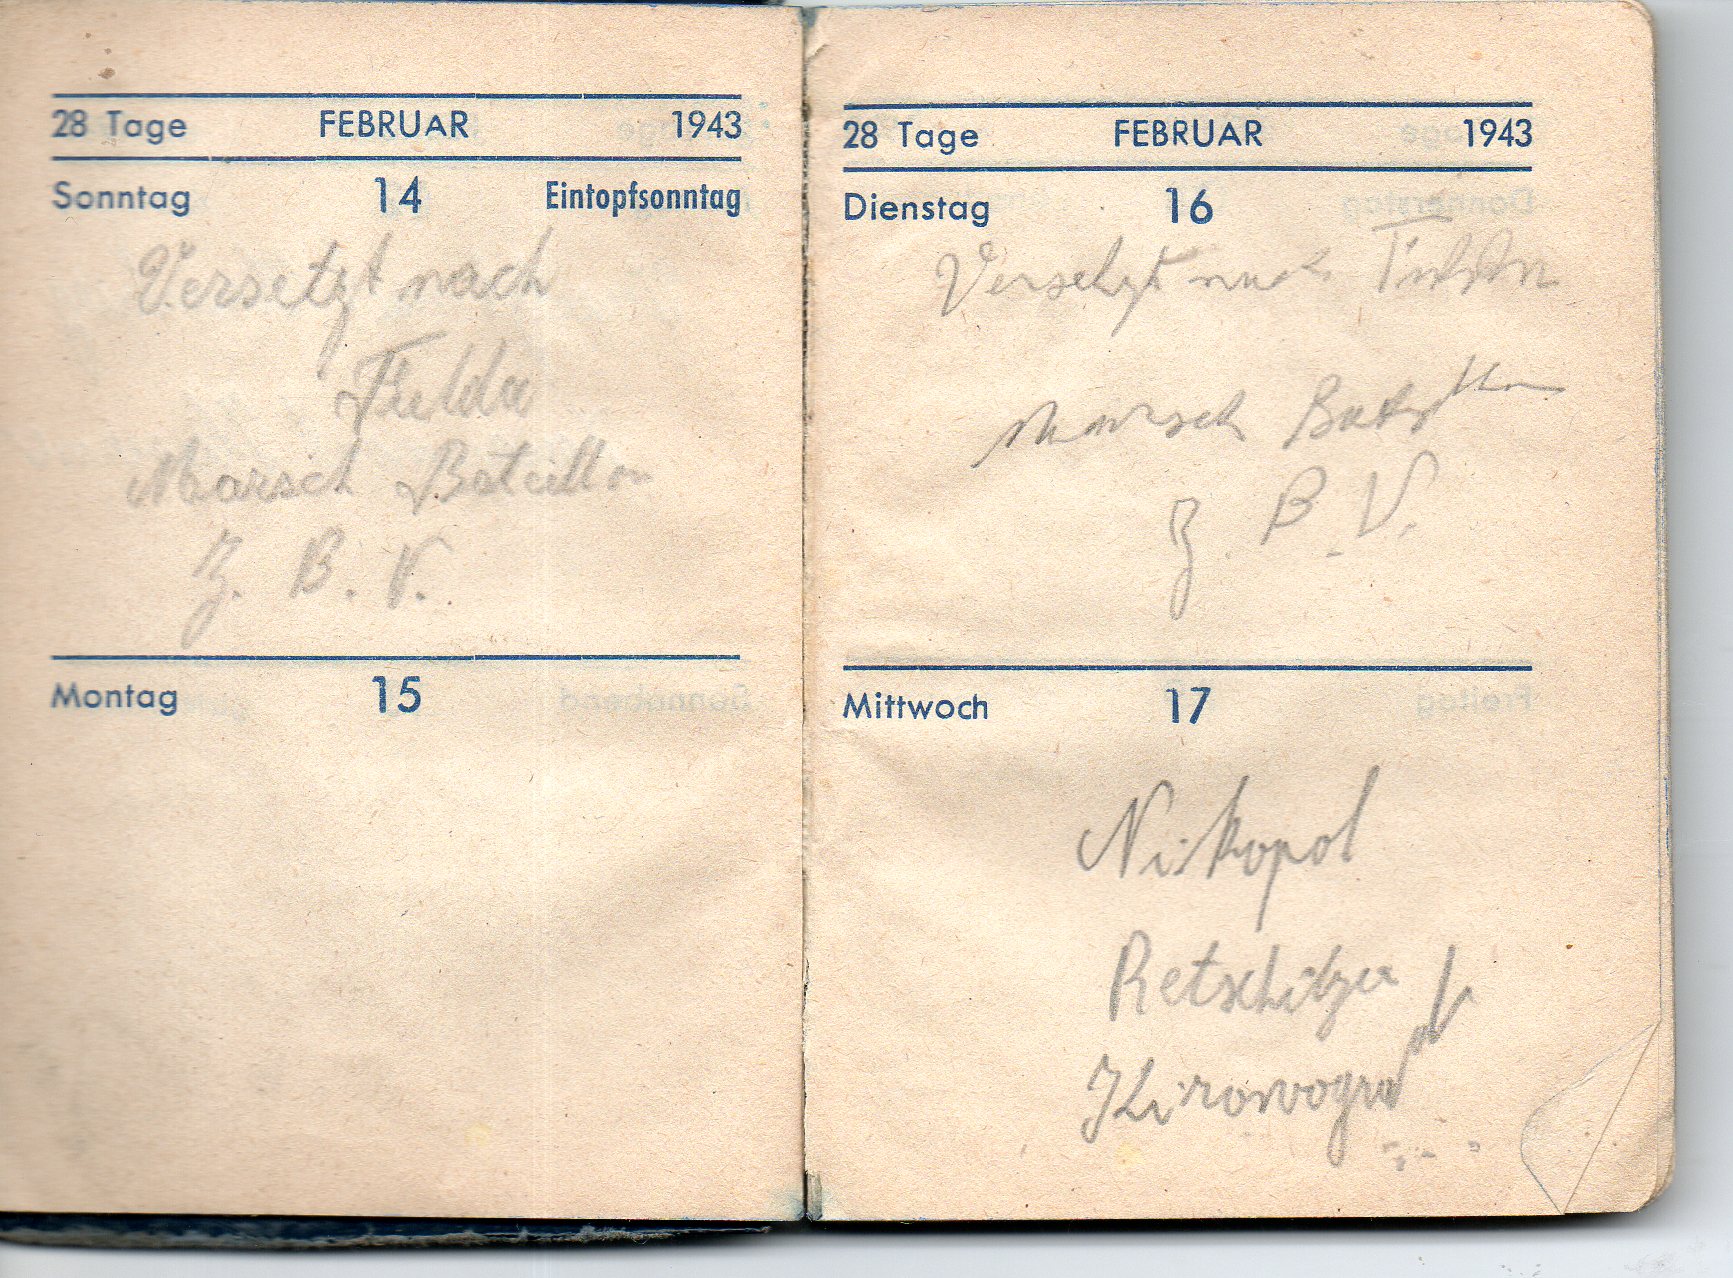 28 Tage FEBRUAR 1943
Sonntag 14 Eintopfsonntag
Versetzt nach
Fulda
Marsch Bataillon
Z. B. V.
Montag 15
28 Tage FEBRUAR 1943
Dienstag 16
Versetzt nach
Marsch
Z. B. V.
Mittwoch 17
Nikopol
Retschitza
Kirowograd